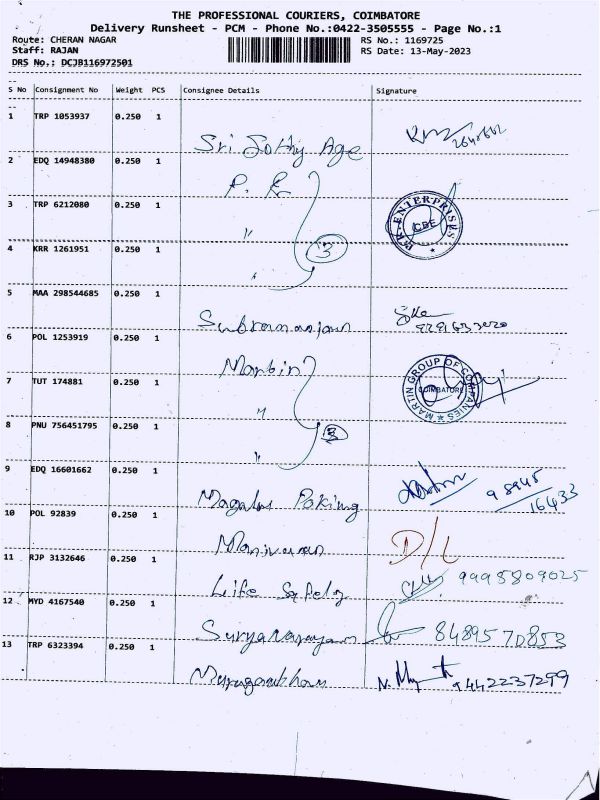 THE PROFESSIONAL COURIERS, COIMBATORE
Delivery Runsheet - PCM - Phone No.:0422-3505555 - Page No.:1
Route: CHERAN NAGAR RS No.: 1169725
Staff: RAJAN RS Date: 13-May-2023
DRS No.: DCJB116972501
S No Consignment No Weight PCS Consignee Details Signature
1 TRP 1053937 0.250 1 Sri Jothy Age
2 EDQ 14948380 0.250 1 P. K
3 TRP 6212080 0.250 1 " P.K. ENTERPRISES CBE
4 KRR 1261951 0.250 1 " 3
5 MAA 298544685 0.250 1
6 POL 1253919 0.250 1 Martin
7 TUT 174881 0.250 1 " MARTIN GROUP OF COMPANIES COIMBATORE
8 PNU 756451795 0.250 1 " 3
9 EDQ 16601662 0.250 1 98945 16433
10 POL 92839 0.250 1 D/L
11 RJP 3132646 0.250 1 Life 9995809025
12 MYD 4167540 0.250 1 Suryanarayan 8489570853
13 TRP 6323394 0.250 1